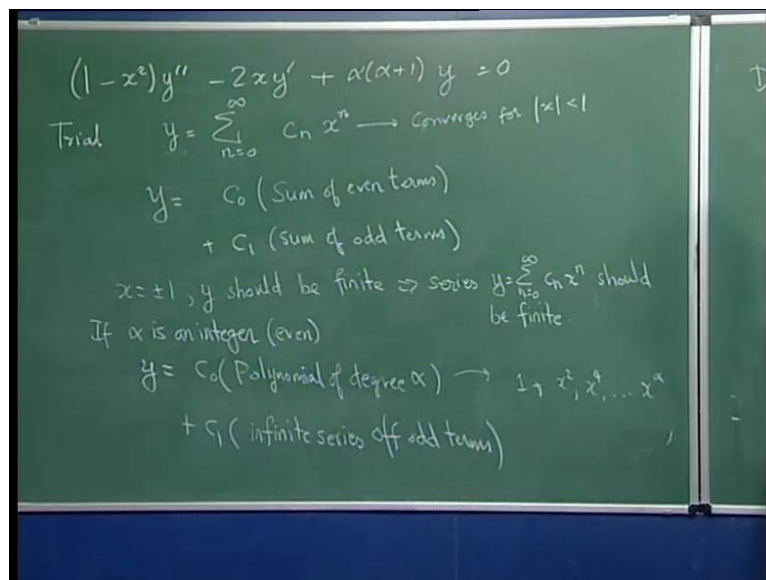 (1 - x²)y" - 2xy' + α(α+1) y = 0
Trial y = ∑_{n=0}^{∞} Cn xⁿ → Converges for |x|<1
y = C₀ (Sum of even terms)
+ C₁ (sum of odd terms)
x = ±1, y should be finite ⇒ series y = ∑_{n=0}^{∞} Cn xⁿ should
be finite.
If α is an integer (even)
y = C₀ (Polynomial of degree α) → 1, x², x⁴, ... x^α
+ C₁ (infinite series off odd terms)